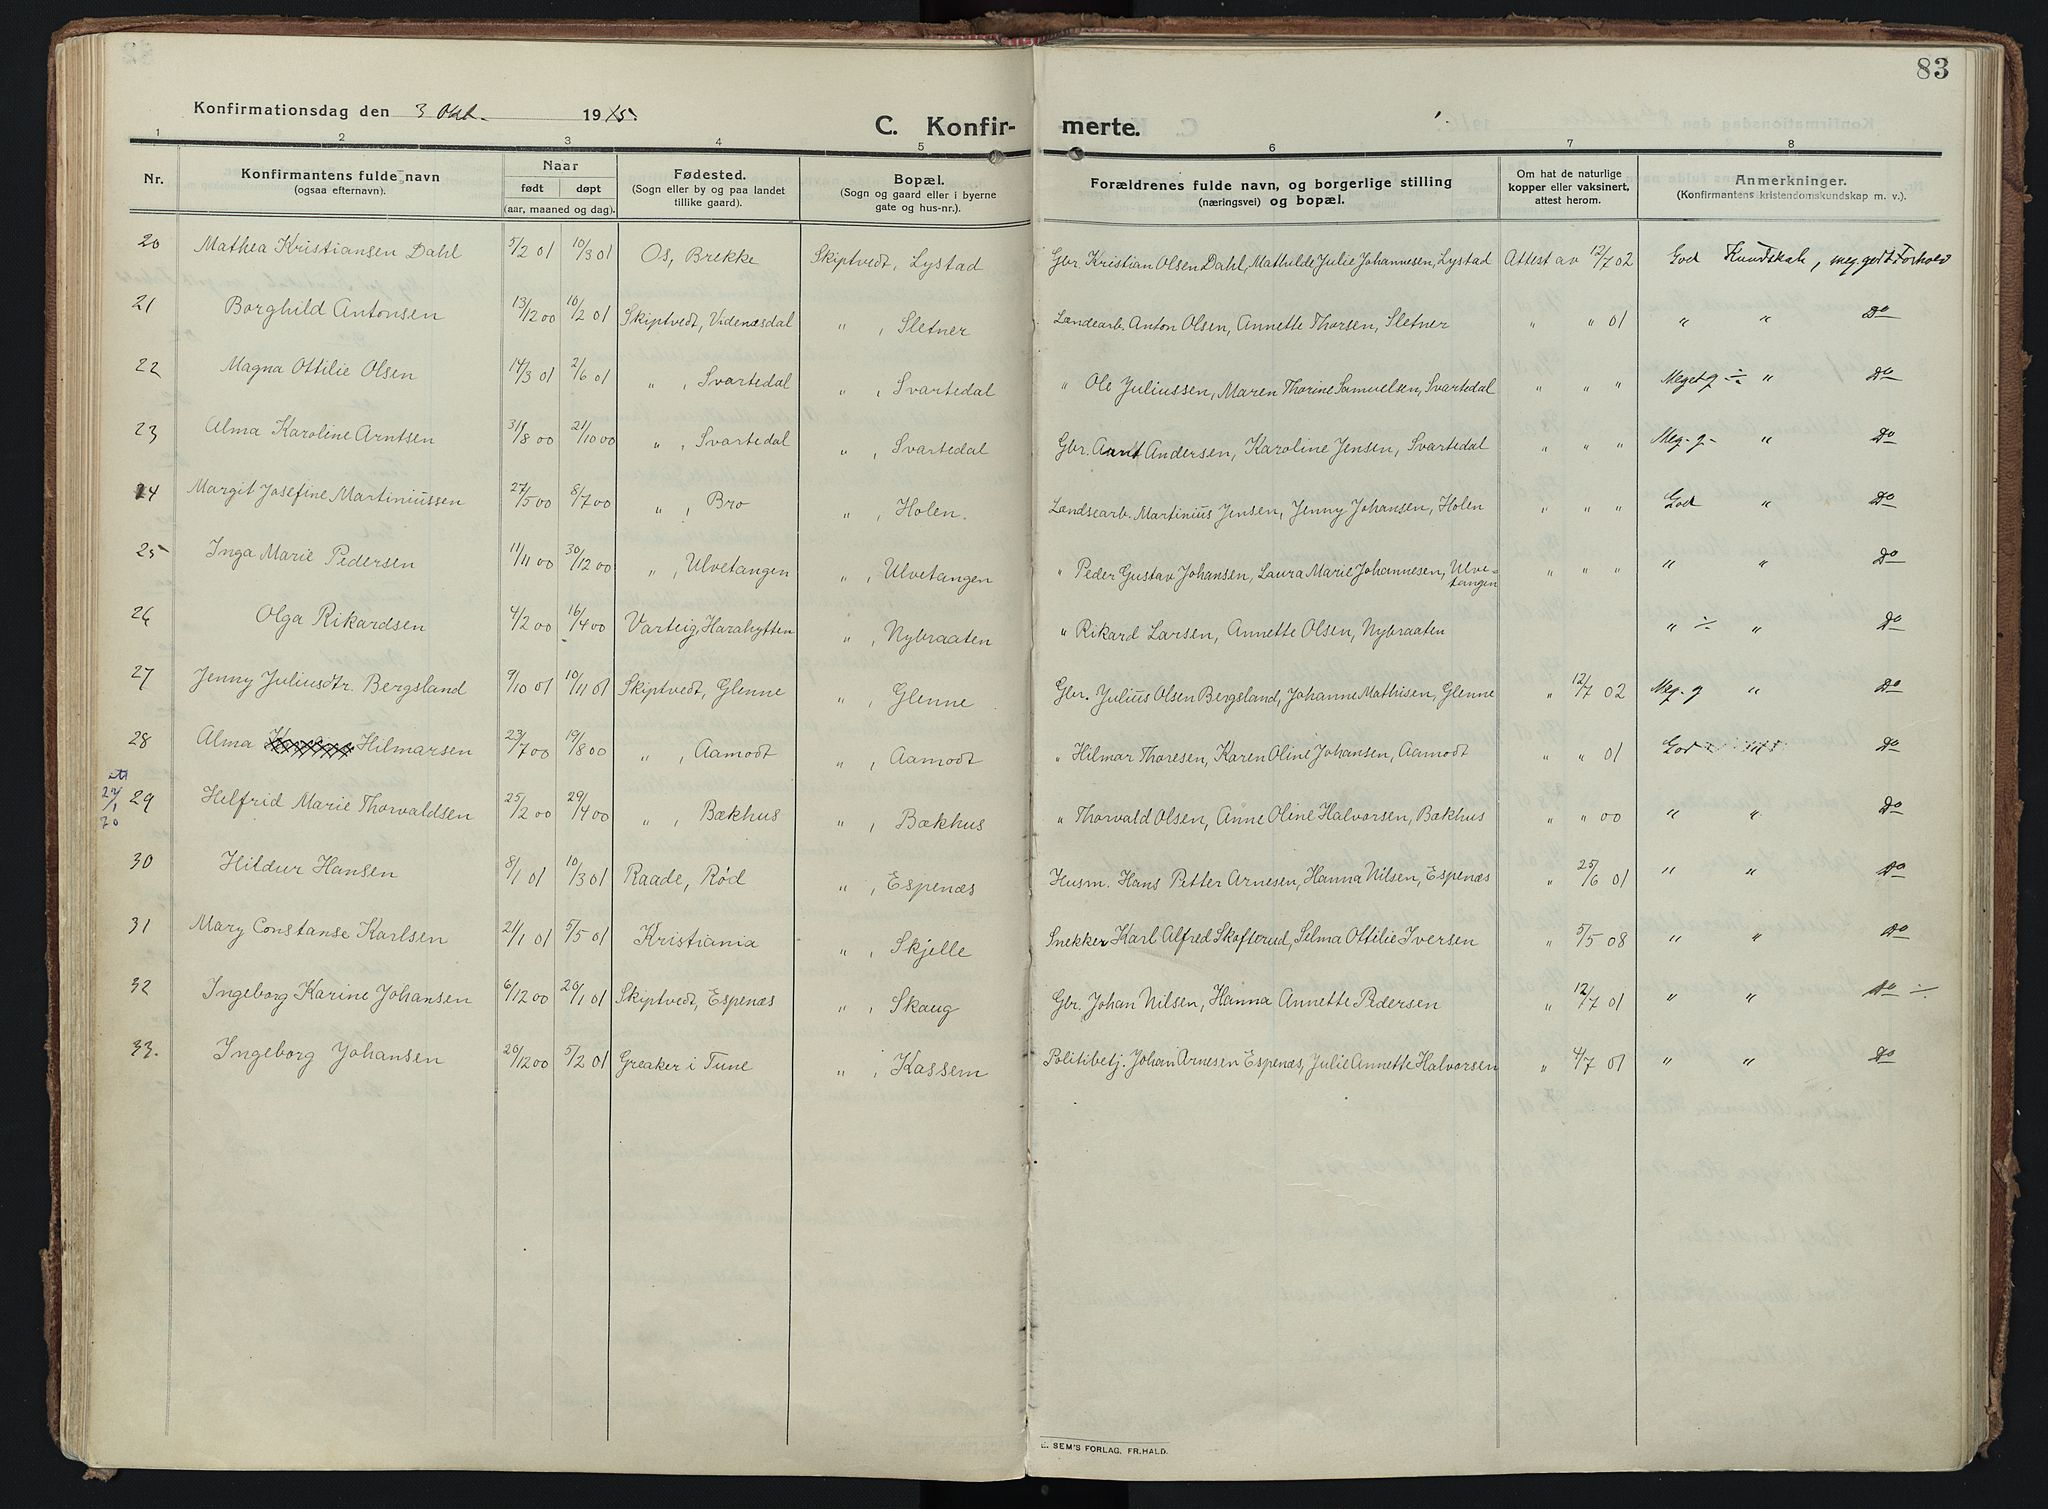 83
Konfirmationsdag den 3 Okt. 1915.
C. Konfirmerte.
1 2 3 4 5 6 7 8
Nr. Konfirmantens fulde navn (ogsaa efternavn). Naar født døpt (aar, maaned og dag). Fødested. (Sogn eller by og paa landet tillike gaard). Bopæl. (Sogn og gaard eller i byerne gate og hus-nr.). Forældrenes fulde navn, og borgerlige stilling (næringsvei) og bopæl. Om hat de naturlige kopper eller vaksinert, attest herom. Anmerkninger. (Konfirmantens kristendomskundskap m. v.).
20 Mathea Kristiansen Dahl 5/2 01 10/3 01 Os, Brekke Skiptvedt, Lystad Gbr. Kristian Olsen Dahl, Mathilde Julie Johannesen, Lystad Attest av 12/7 02 God Kundskab, meg. godt Forhold
21 Borghild Antonsen 13/12 00 10/2 01 Skiptvedt, Videnæsdal " , Sletner Landearb. Anton Olsen, Annette Thorsen, Sletner " " 01 " " Do
22 Magna Ottilie Olsen 14/3 01 2/6 01 " , Svartedal " , Svartedal " Ole Juliussen, Maren Thorine Samuelsen, Svartedal " " " Meget g ÷ " Do
23 Alma Karoline Arntsen 31/8 00 21/10 00 " , Svartedal " , Svartedal Gbr. Arnt Andersen, Karoline Jensen, Svartedal " " " Meg. g. " Do
24 Margit Josefine Martiniussen 27/5 00 8/7 00 " , Bro " , Holen. Landsearb. Martinius Jensen, Jenny Johansen, Holen " " " God " Do
25 Inga Marie Pedersen 11/11 00 30/12 00 " , Ulvetangen " , Ulvetangen " Peder Gustav Johansen, Laura Marie Johannesen, Ulvetangen " " " " " Do
26 Olga Rikardsen 4/2 00 16/4 00 Varteig, Harahytten " , Nybraaten " Rikard Larsen, Annette Olsen, Nybraaten " ÷ " Do
27 Jenny Juliusdtr. Bergsland 9/10 01 10/11 01 Skiptvedt, Glenne " , Glenne Gbr. Julius Olsen Bergsland, Johanne Mathisen, Glenne " 12/7 02 Meg. g " Do
28 Alma Hilmarsen 23/7 00 19/8 00 " , Aamodt " , Aamodt " Hilmar Thoresen, Karen Oline Johansen, Aamodt " " 01 God Do
29 Helfrid Marie Thorvaldsen 25/2 00 29/4 00 " , Bækhus " , Bækhus " Thorvald Olsen, Anne Oline Halvorsen, Bækhus " " 00 " " Do
30 Hildur Hansen 8/1 01 10/3 01 Raade, Rød " , Espenæs Husm. Hans Petter Arnesen, Hanna Nilsen, Espenæs " 25/6 01 " " Do
31 Mary Constanse Karlsen 21/1 01 5/5 01 Kristiania " , Skjelle Snekker Karl Alfred Skofterud, Selma Ottilie Iversen " 5/5 08 " " Do
32 Ingeborg Karine Johansen 6/12 00 20/1 01 Skiptvedt, Espenæs " , Skaug Gbr. Johan Nilsen, Hanna Annette Pedersen " 12/7 01 " " Do ÷
33. Ingeborg Johansen 26/12 00 5/2 01 Greaker i Tune " , Kassem Politibetj. Johan Arnesen Espenæs, Julie Annette Halvorsen " 4/7 01 " " Do
E. SEM'S FORLAG, FR.HALD.